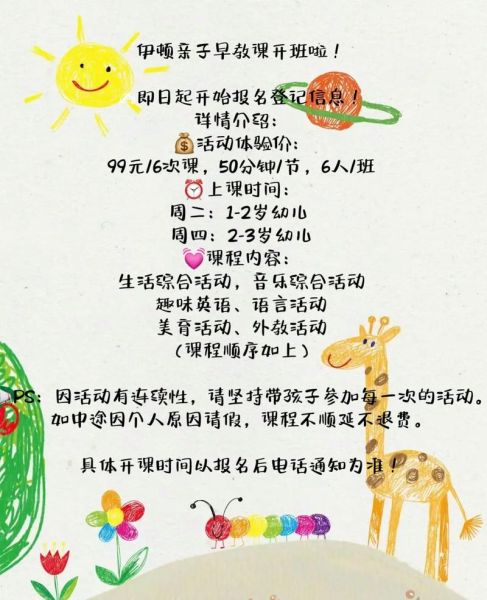 伊顿亲子早教课开班啦！
即日起开始报名登记信息！
详情介绍：
活动体验价：
99元/6次课，50分钟/节，6人/班
上课时间：
周二：1-2岁幼儿
周四：2-3岁幼儿
课程内容：
生活综合活动，音乐综合活动
趣味英语、语言活动
美育活动、外教活动
（课程顺序如上）
PS：因活动有连续性，请坚持带孩子参加每一次的活动。
如中途因个人原因请假，课程不顺延不退费。
具体开课时间以报名后电话通知为准！